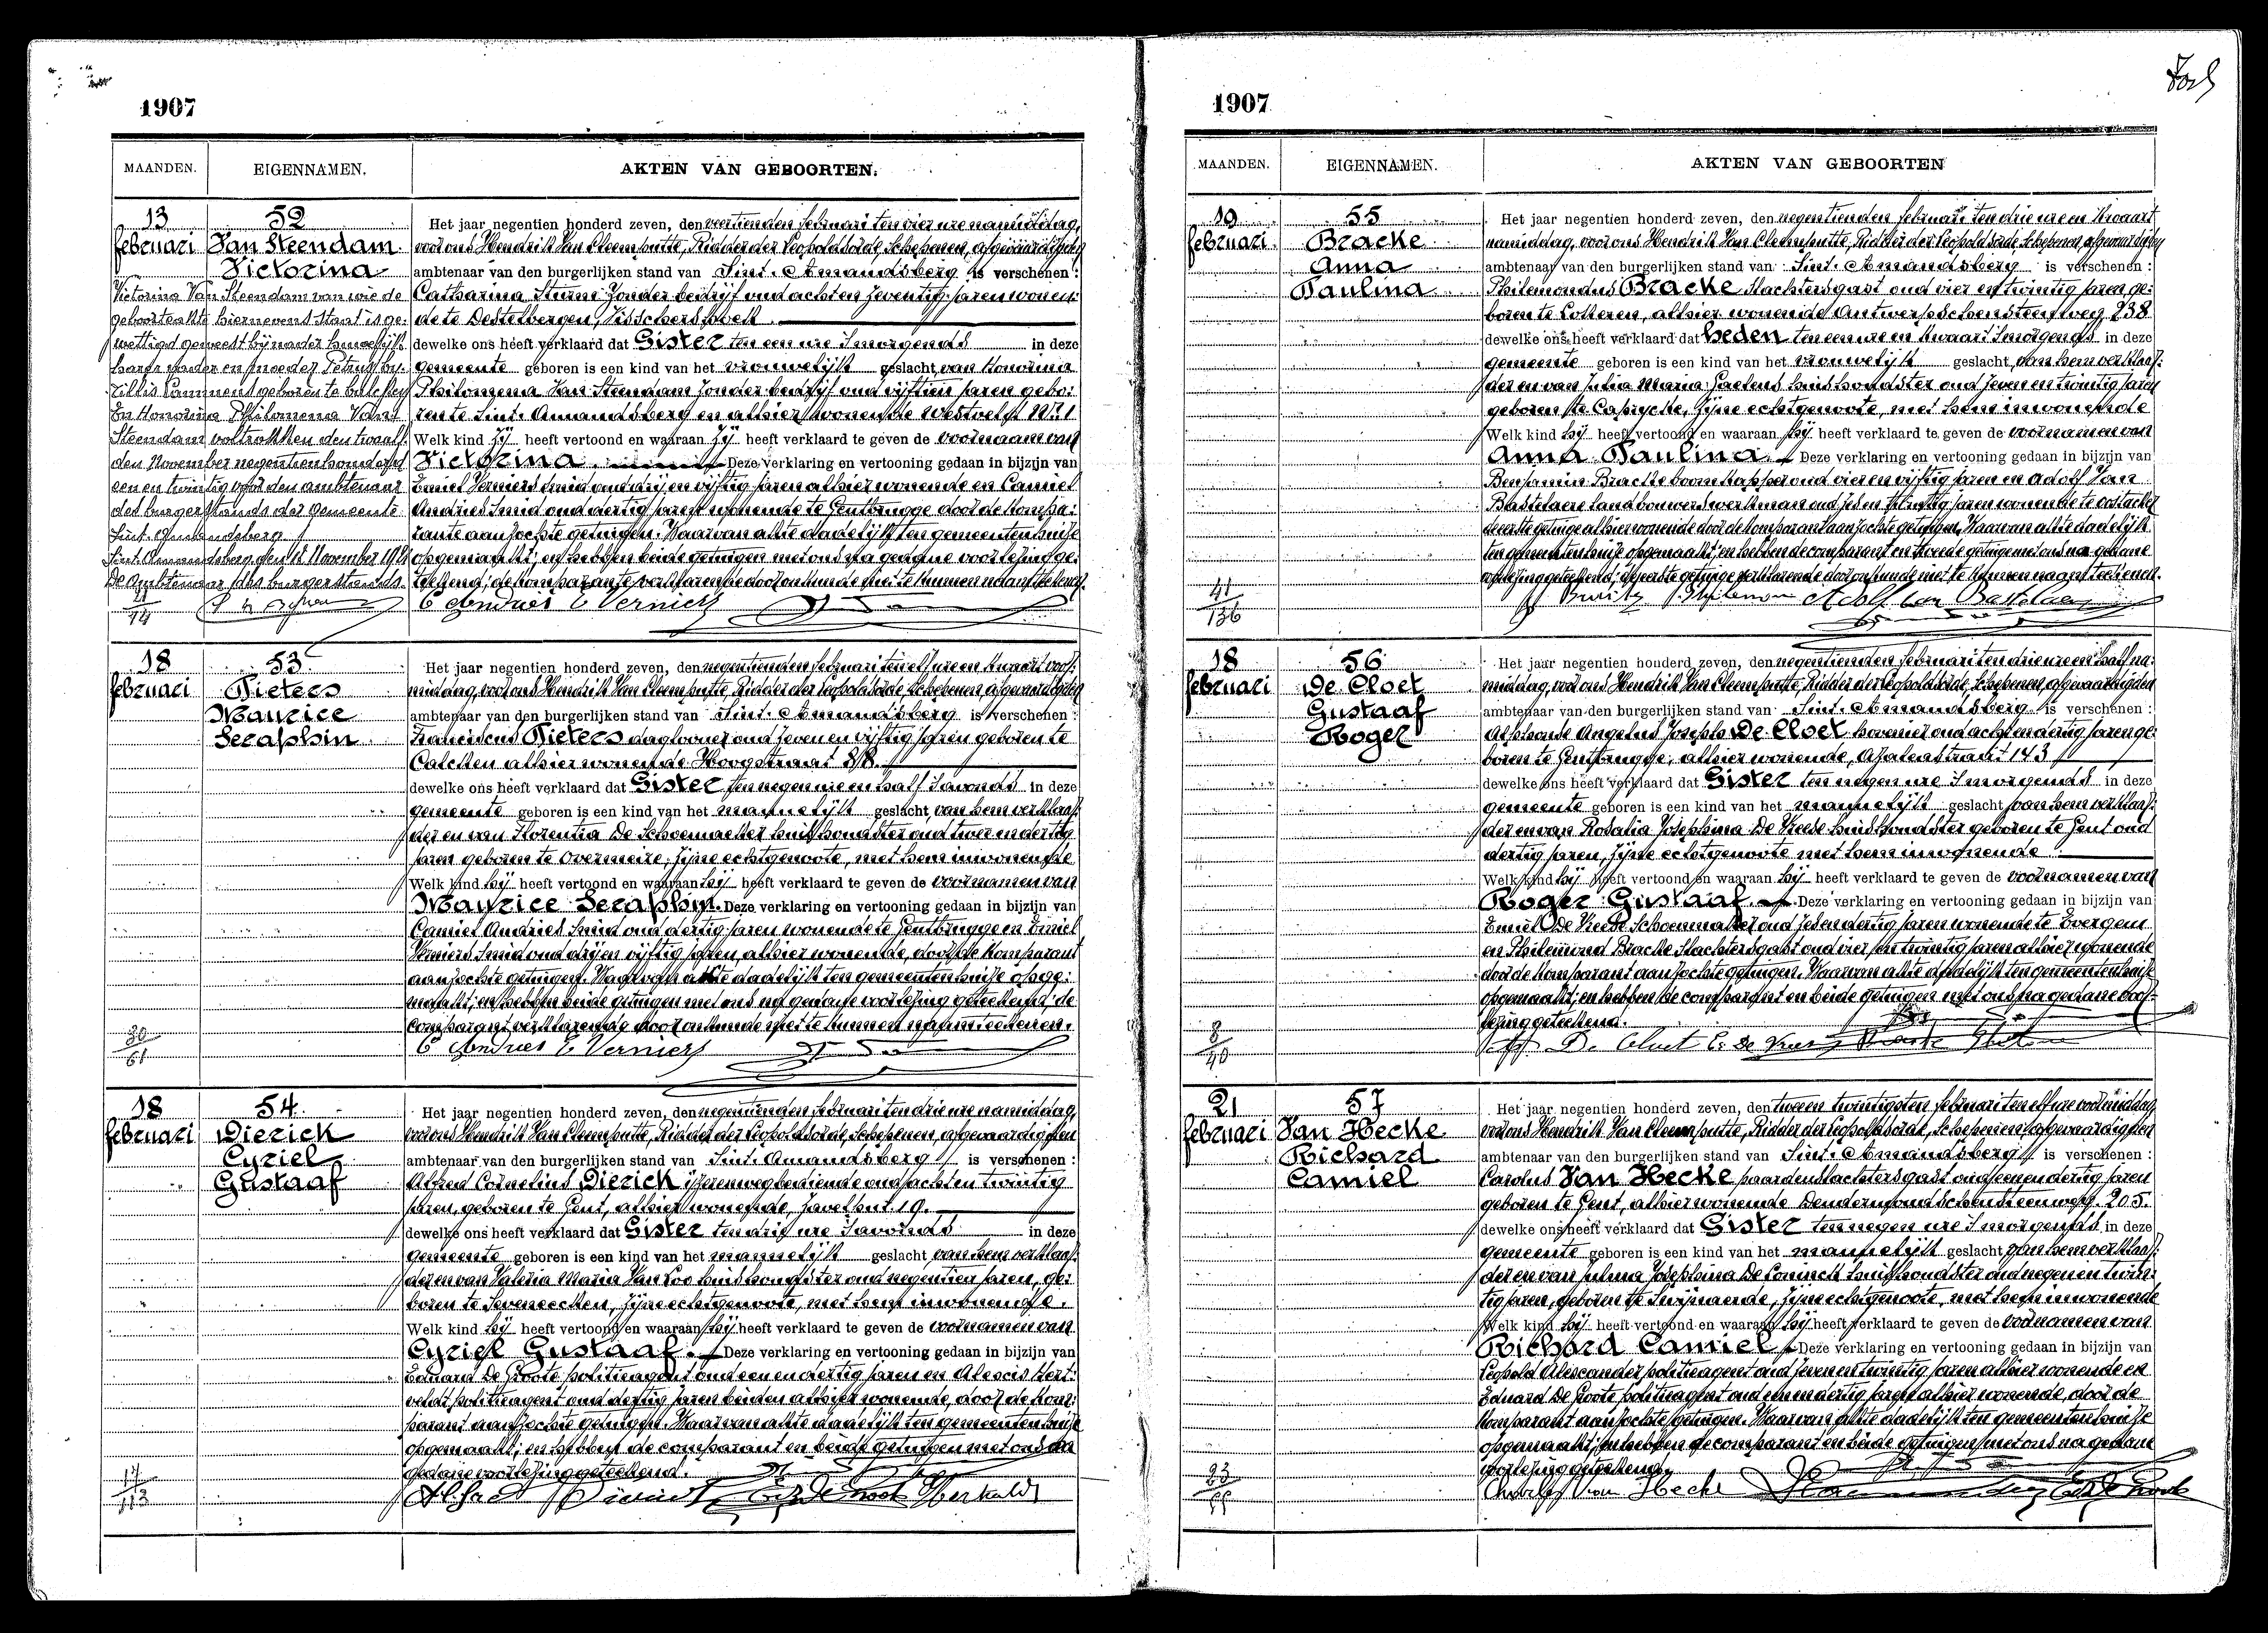 1907
MAANDEN. EIGENNAMEN. AKTEN VAN GEBOORTEN.
13 februari
52
Van Steendam
Victorina
Victorina Van Steendam van wie de
geboorteakte hiernevens staat is ge:
wettigd geweest bij nader huwelijk
harer vader en moeder Petrus
Cammens geboren te
En Honorina Philomena Van
Steendam voltrokken den twaalf:
den November negentienhonderd
een en twintig voor den ambtenaar
des burgerstands der gemeente
Sint. Amandsberg
Sint. Amandsberg den 12 November 1921
De Ambtenaar des burgerstands.
21/74
Het jaar negentien honderd zeven, den veertienden februari ten vier ure namiddag,
voor ons Hendrik Van Cleemputte, Ridder der Leopoldsorde, Schepenen, afgevaardigden
ambtenaar van den burgerlijken stand van Sint. Amandsberg is verschenen :
Catharina Sturne zonder bedrijf oud acht en zeventig jaren wonen:
de te Destelbergen, Visschershoek
dewelke ons heeft verklaard dat Gister ten een ure 's morgends in deze
gemeente geboren is een kind van het vrouwelijk geslacht, van Honorina
Philomena Van Steendam zonder bedrijf oud vijftien jaren gebo:
ren te Sint. Amandsberg en alhier wonende Westveld
Welk kind zij heeft vertoond en waaraan zij heeft verklaard te geven de voornaam van
Victorina. Deze verklaring en vertooning gedaan in bijzijn van
Emiel Verniers smid oud drij en vijftig jaren alhier wonende en Camiel
Andries smid oud dertig jaren wonende te Gentbrugge door de kompa:
rante aanzochte getuigen. Waarvan akte dadelijk ten gemeentenhuise
opgemaakt; en hebben beide getuigen met ons na gedane voorlezing ge:
teekend; de komparante verklarende door onkunde niet te kunnen naamteekenen.
C Andries E Verniers
18 februari
53
Pieters
Maurice
Seraphin
30/61
Het jaar negentien honderd zeven, den negentienden februari ten elf ure en kwaart voor:
middag, voor ons Hendrik Van Cleemputte, Ridder der Leopoldsorde Schepenen, afgevaardigden
ambtenaar van den burgerlijken stand van Sint. Amandsberg is verschenen :
Franciscus Pieters daglooner oud zeven en vijftig jaren geboren te
Calcken alhier wonende Hoogstraat 88
dewelke ons heeft verklaard dat Gister ten negen ure en half 's avonds in deze
gemeente geboren is een kind van het mannelijk geslacht, van hem verklaar:
der en van Florentia De Schoenmaeker huishoudster oud twee en dertig
jaren geboren te Overmeire, zijne echtgenoote, met hem inwonende
Welk kind hij heeft vertoond en waaraan hij heeft verklaard te geven de voornamen van
Maurice Seraphin. Deze verklaring en vertooning gedaan in bijzijn van
Camiel Andries smid oud dertig jaren wonende te Gentbrugge en Emiel
Verniers smid oud drij en vijftig jaren alhier wonende, door de komparant
aanzochte getuigen. Waarvan akte dadelijk ten gemeentenhuise opge:
maakt; en hebben beide getuigen met ons na gedane voorlezing geteekend; de
comparant verklarende door onkunde niet te kunnen naamteekenen.
C Andries E Verniers
18 februari
54
Dierick
Cyriel
Gustaaf
17/113
Het jaar negentien honderd zeven, den negentienden februari ten drie ure namiddag,
voor ons Hendrik Van Cleemputte, Ridder der Leopoldsorde Schepenen, afgevaardigden
ambtenaar van den burgerlijken stand van Sint. Amandsberg is verschenen :
Alfred Cornelius Dierick ijzerenwegbediende oud acht en twintig
jaren, geboren te Gent, alhier wonende, Zavelput 19.
dewelke ons heeft verklaard dat Gister ten drij ure 's avonds in deze
gemeente geboren is een kind van het mannelijk geslacht van hem verklaar:
der en van Valeria Maria Van Loo huishoudster oud negentien jaren, ge:
boren te Seveneecken, zijne echtgenoote, met hem inwonende.
Welk kind hij heeft vertoond en waaraan hij heeft verklaard te geven de voornamen van
Cyriel Gustaaf. Deze verklaring en vertooning gedaan in bijzijn van
Eduard De Groote politieagent oud een en dertig jaren en Alexis Hert:
veldt politieagent oud dertig jaren beiden alhier wonende, door de kom:
parant aanzochte getuigen. Waarvan akte dadelijk ten gemeentenhuise
opgemaakt; en hebben de comparant en beide getuigen met ons na
gedane voorlezing geteekend.
Alfred Dierick
1907
MAANDEN. EIGENNAMEN. AKTEN VAN GEBOORTEN
19 februari
55
Bracke
Anna
Paulina
41/136
Het jaar negentien honderd zeven, den negentienden februari ten drie ure en kwaart
namiddag, voor ons Hendrik Van Cleemputte, Ridder der Leopoldsorde, Schepenen, afgevaardigden
ambtenaar van den burgerlijken stand van Sint. Amandsberg is verschenen :
Philemondus Bracke slachtersgast oud vier en twintig jaren ge:
boren te Lotteren, alhier wonende Antwerpschensteenweg 238
dewelke ons heeft verklaard dat heden ten een ure en kwaart 's morgends in deze
gemeente geboren is een kind van het vrouwelijk geslacht, van hem verklaar:
der en van Julia Maria Caetens huishoudster oud zeven en twintig jaren
geboren te Caprycke, zijne echtgenoote, met hem inwonende
Welk kind hij heeft vertoond en waaraan hij heeft verklaard te geven de voornamen van
Anna Paulina. Deze verklaring en vertooning gedaan in bijzijn van
Benjamin Bracke boomkapper oud vier en vijftig jaren en Adolf Van
Bastelaere landbouwerswerkman oud zes en twintig jaren wonende te Oostacker
de eerste getuige alhier wonende door de komparant aanzochte getuigen. Waarvan akte dadelijk
ten gemeentenhuise opgemaakt; en hebben de comparant en tweede getuige met ons na gedane
voorlezing geteekend; de eerste getuige verklarende door onkunde niet te kunnen naamteekenen.
Philemon Adolf Van Bastelaere
18 februari
56
De Cloet
Gustaaf
Roger
8/40
Het jaar negentien honderd zeven, den negentienden februari ten drie ure en half na:
middag, voor ons Hendrik Van Cleemputte, Ridder der Leopoldsorde, Schepenen, afgevaardigden
ambtenaar van den burgerlijken stand van Sint. Amandsberg is verschenen :
Alphonse Angelus Joseph De Cloet hovenier oud acht en dertig jaren ge:
boren te Gentbrugge, alhier wonende, Azaleastraat 143
dewelke ons heeft verklaard dat Gister ten negen ure 's morgends in deze
gemeente geboren is een kind van het mannelijk geslacht, van hem verklaar:
der en van Rosalia Josephina De Vreese huishoudster geboren te Gent oud
dertig jaren, zijne echtgenoote met hem inwonende
Welk kind hij heeft vertoond en waaraan hij heeft verklaard te geven de voornamen van
Roger Gustaaf. Deze verklaring en vertooning gedaan in bijzijn van
Emiel De Vreese schoenmaker oud zes en dertig jaren wonende te Evergem
en Philemond Bracke slachtersgast oud vier en twintig jaren alhier wonende
door de komparant aanzochte getuigen. Waarvan akte dadelijk ten gemeentenhuise
opgemaakt; en hebben de comparant en beide getuigen met ons na gedane voor:
lezing geteekend.
De Cloet E. De Vreese Bracke
21 februari
57
Van Hecke
Richard
Camiel
Het jaar negentien honderd zeven, den tween twintigsten februari ten elf ure voormiddag
voor ons Hendrik Van Cleemputte, Ridder der Leopoldsorde, Schepenen, afgevaardigden
ambtenaar van den burgerlijken stand van Sint. Amandsberg is verschenen :
Carolus Van Hecke paardenslachtersgast oud een en dertig jaren
geboren te Gent, alhier wonende Dendermondschensteenweg. 205.
dewelke ons heeft verklaard dat Gister ten negen ure 's morgends in deze
gemeente geboren is een kind van het mannelijk geslacht van hem verklaar:
der en van Julma Josephina De Coninck huishoudster oud negen en twin:
tig jaren, geboren te Swijnaerde, zijne echtgenoote, met hem inwonende
Welk kind hij heeft vertoond en waaraan hij heeft verklaard te geven de voornamen van
Richard Camiel Deze verklaring en vertooning gedaan in bijzijn van
Leopold Alexander politieagent oud zeven en twintig jaren alhier wonende en
Eduard De Groote politieagent oud een en dertig jaren alhier wonende, door de
komparant aanzochte getuigen. Waarvan akte dadelijk ten gemeentenhuise
opgemaakt; en hebben de comparant en beide getuigen met ons na gedane
voorlezing geteekend.
Charles Van Hecke